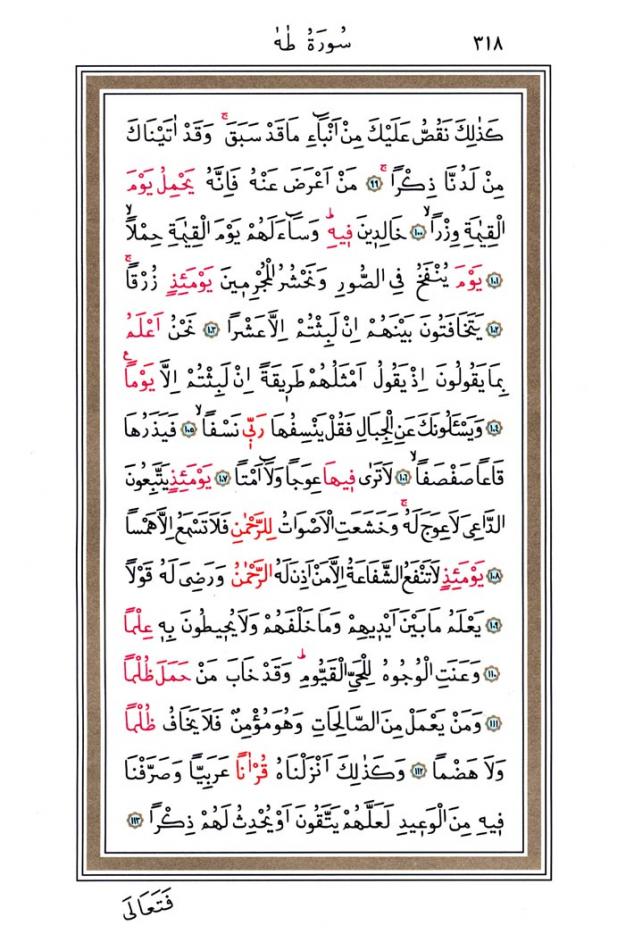 ٣١٨ سُورَةُ طٰهٰ
كَذٰلِكَ نَقُصُّ عَلَيْكَ مِنْ اَنْبَٓاءِ مَا قَدْ سَبَقَۚ وَقَدْ اٰتَيْنَاكَ
مِنْ لَدُنَّا ذِكْرًاۚ ﴿٩٩﴾ مَنْ اَعْرَضَ عَنْهُ فَاِنَّهُ يَحْمِلُ يَوْمَ
الْقِيٰمَةِ وِزْرًاۙ ﴿١٠٠﴾ خَالِدِينَ فِيهِۜ وَسَٓاءَ لَهُمْ يَوْمَ الْقِيٰمَةِ حِمْلًاۙ
﴿١٠١﴾ يَوْمَ يُنْفَخُ فِي الصُّورِ وَنَحْشُرُ الْمُجْرِمِينَ يَوْمَئِذٍ زُرْقًاۚ
﴿١٠٢﴾ يَتَخَافَتُونَ بَيْنَهُمْ اِنْ لَبِثْتُمْ اِلَّا عَشْرًا ﴿١٠٣﴾ نَحْنُ اَعْلَمُ
بِمَا يَقُولُونَ اِذْ يَقُولُ اَمْثَلُهُمْ طَرِيقَةً اِنْ لَبِثْتُمْ اِلَّا يَوْمًاۚ
﴿١٠٤﴾ وَيَسْـَٔلُونَكَ عَنِ الْجِبَالِ فَقُلْ يَنْسِفُهَا رَبِّي نَسْفًاۙ ﴿١٠٥﴾ فَيَذَرُهَا
قَاعًا صَفْصَفًاۙ ﴿١٠٦﴾ لَا تَرٰى فِيهَا عِوَجًا وَلَٓا اَمْتًا ﴿١٠٧﴾ يَوْمَئِذٍ يَتَّبِعُونَ
الدَّاعِيَ لَا عِوَجَ لَهُۚ وَخَشَعَتِ الْاَصْوَاتُ لِلرَّحْمٰنِ فَلَا تَسْمَعُ اِلَّا هَمْسًا
﴿١٠٨﴾ يَوْمَئِذٍ لَا تَنْفَعُ الشَّفَاعَةُ اِلَّا مَنْ اَذِنَ لَهُ الرَّحْمٰنُ وَرَضِيَ لَهُ قَوْلًا
﴿١٠٩﴾ يَعْلَمُ مَا بَيْنَ اَيْدِيهِمْ وَمَا خَلْفَهُمْ وَلَا يُحِيطُونَ بِهِ عِلْمًا
﴿١١٠﴾ وَعَنَتِ الْوُجُوهُ لِلْحَيِّ الْقَيُّومِۜ وَقَدْ خَابَ مَنْ حَمَلَ ظُلْمًا
﴿١١١﴾ وَمَنْ يَعْمَلْ مِنَ الصَّالِحَاتِ وَهُوَ مُؤْمِنٌ فَلَا يَخَافُ ظُلْمًا
وَلَا هَضْمًا ﴿١١٢﴾ وَكَذٰلِكَ اَنْزَلْنَاهُ قُرْاٰنًا عَرَبِيًّا وَصَرَّفْنَا
فِيهِ مِنَ الْوَعِيدِ لَعَلَّهُمْ يَتَّقُونَ اَوْ يُحْدِثُ لَهُمْ ذِكْرًا ﴿١١٣﴾
فَتَعَالَى